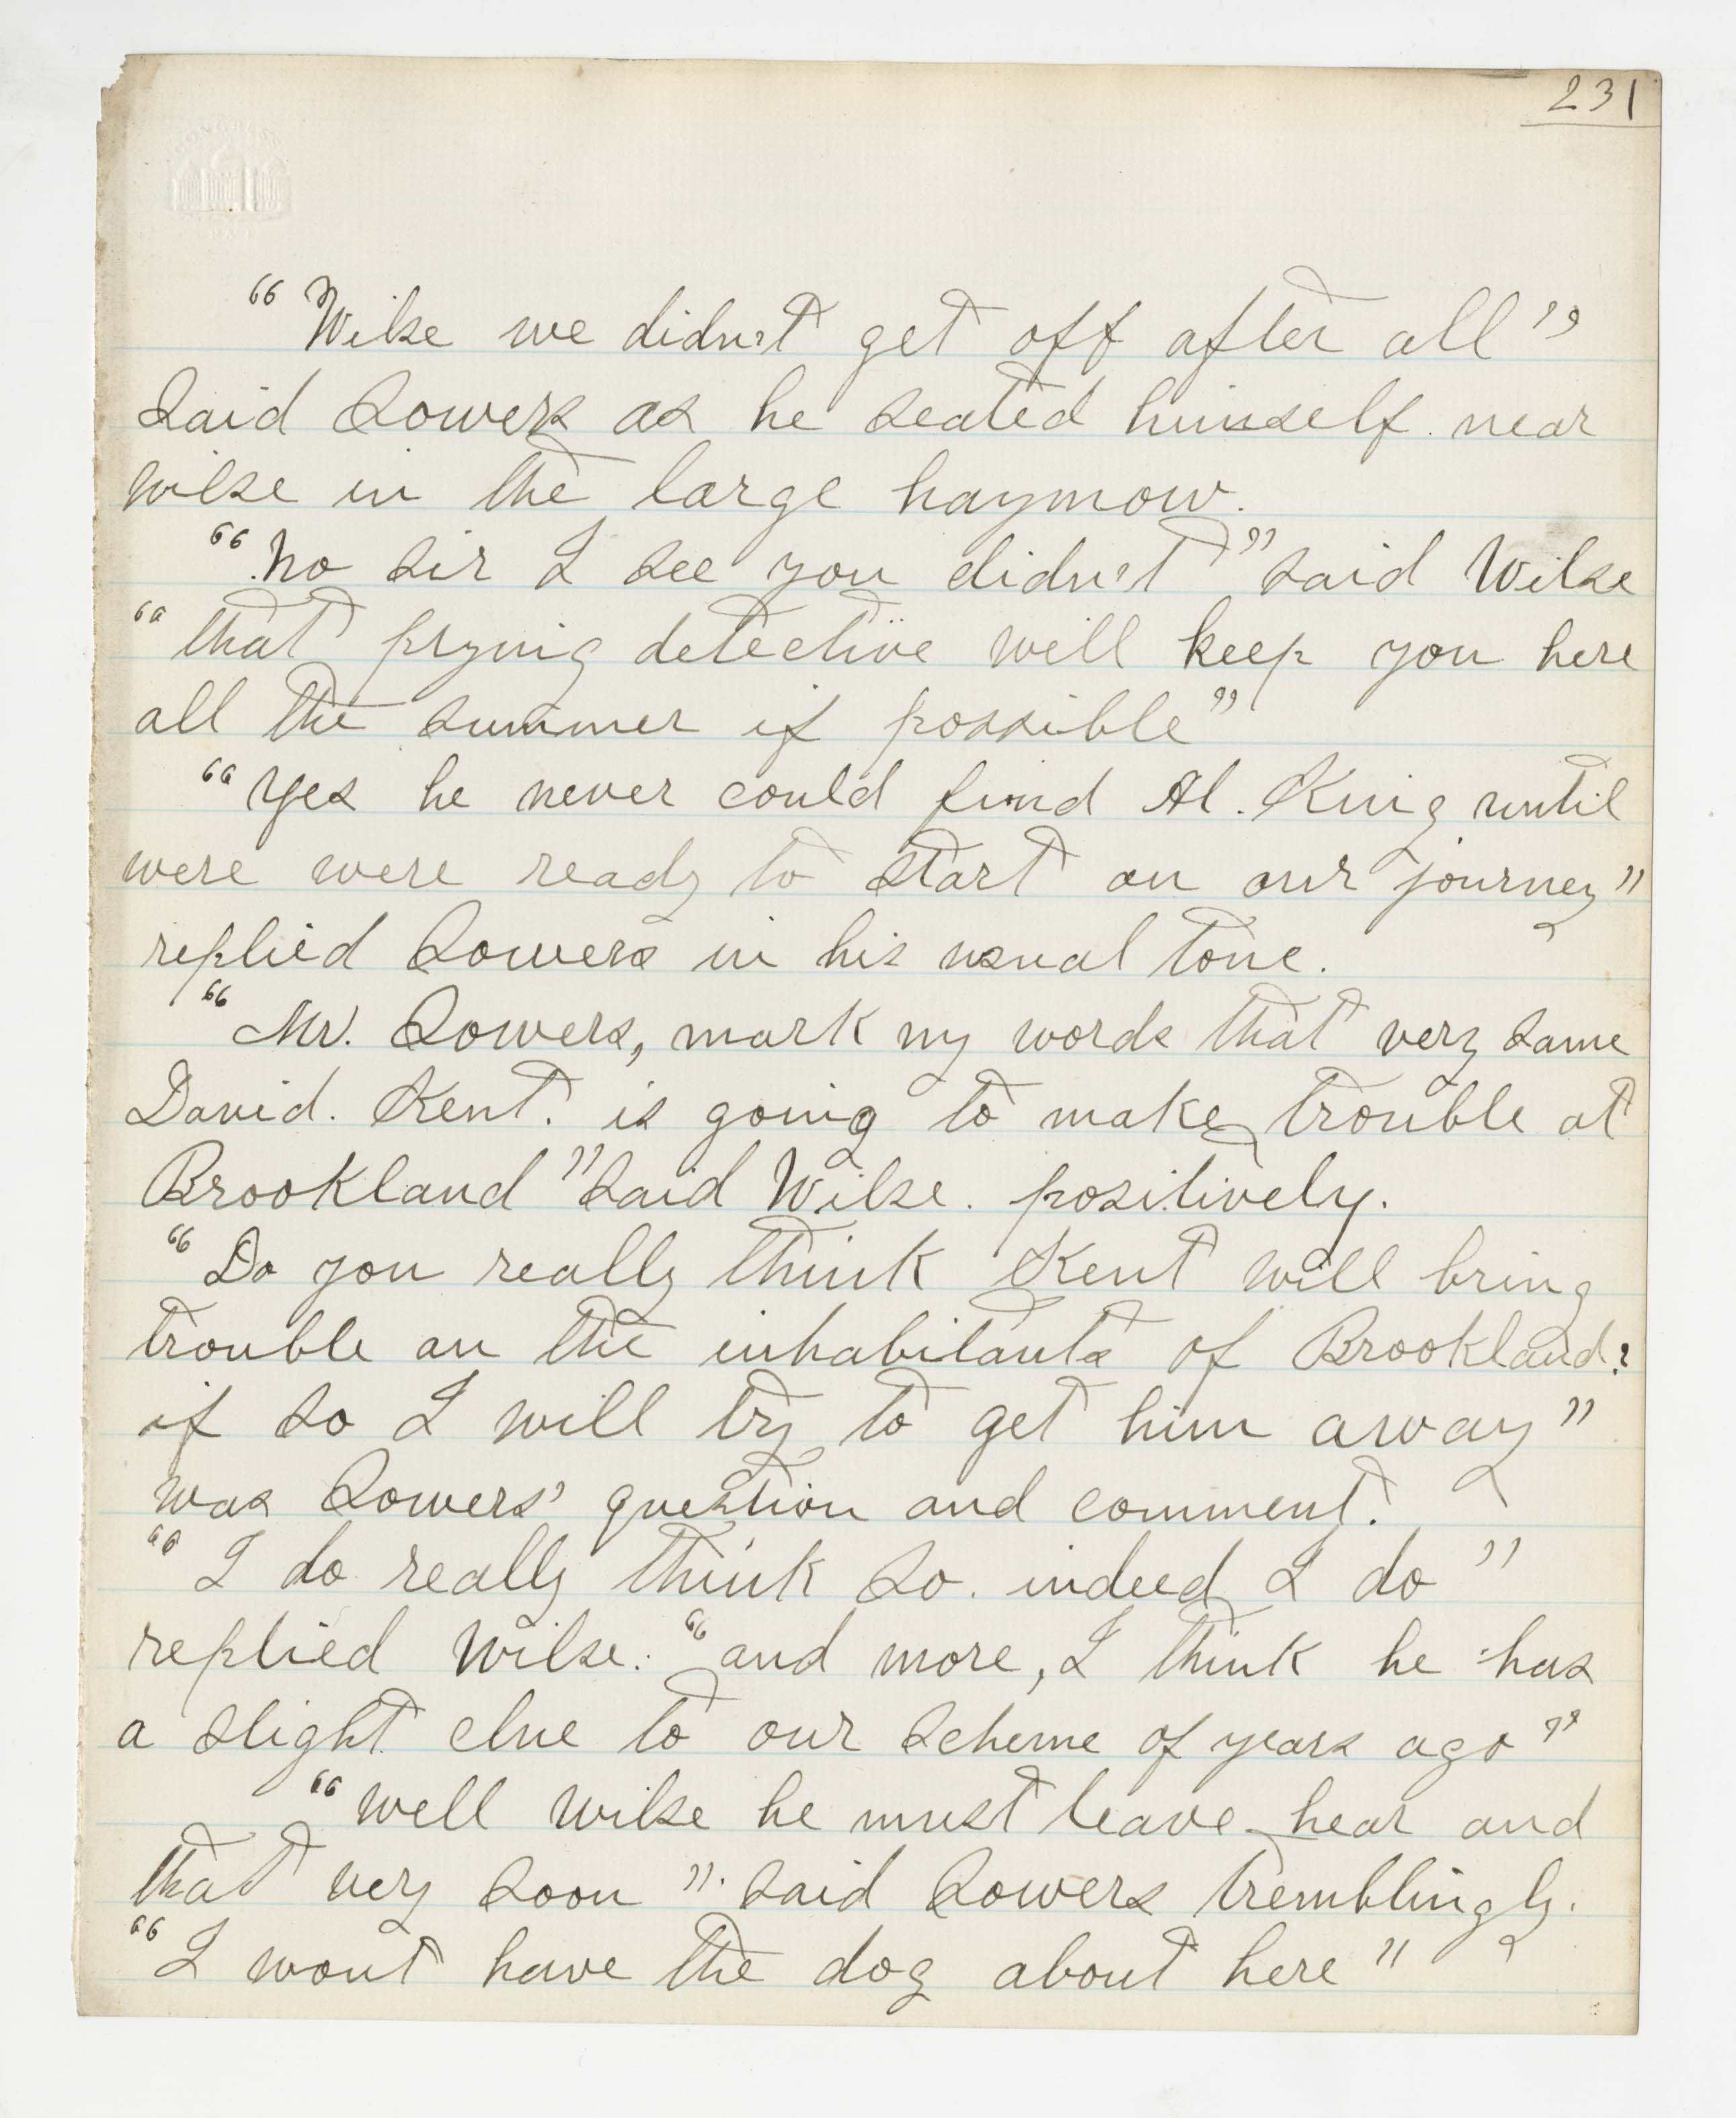 231
CONGRESS
"Wilse we didn't get off after all"
said Sowers as he seated himself near
wilse in the large haymow.
"No sir I see you didn't" said Wilse
"that prying detective will keep you here
all the summer if possible"
"Yes he never could find Al. King until
were were ready to start on our journey"
replied Sowers in his usual tone.
"Mr. Sowers, mark my words that very same
David. Kent. is going to make trouble at
Brookland" said Wilse. positively.
"Do you really think Kent will bring
trouble on the inhabitants of Brookland?
if so I will try to get him away"
was Sowers' question and comment.
"I do really think so. indeed I do"
replied Wilse. "and more, I think he has
a slight clue to our scheme of years ago"
"well wilse he must leave hear and
that very soon". said Sowers tremblingly.
"I wont have the dog about here"